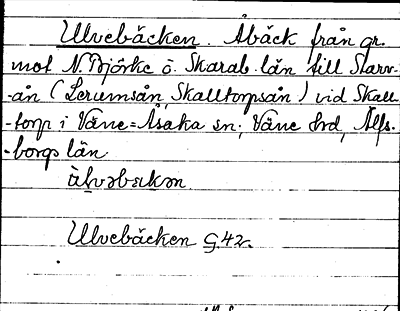 Ulvebäcken. Åbäck från gr.
mot N. Björke o. Skarab. län till Starv-
-ån (Lerumsån, Skalltorpsån) vid Skall-
-torp i Väne=Åsaka sn; Väne Hrd, Älfs-
-borgs län
Ulvebäcken G.42.